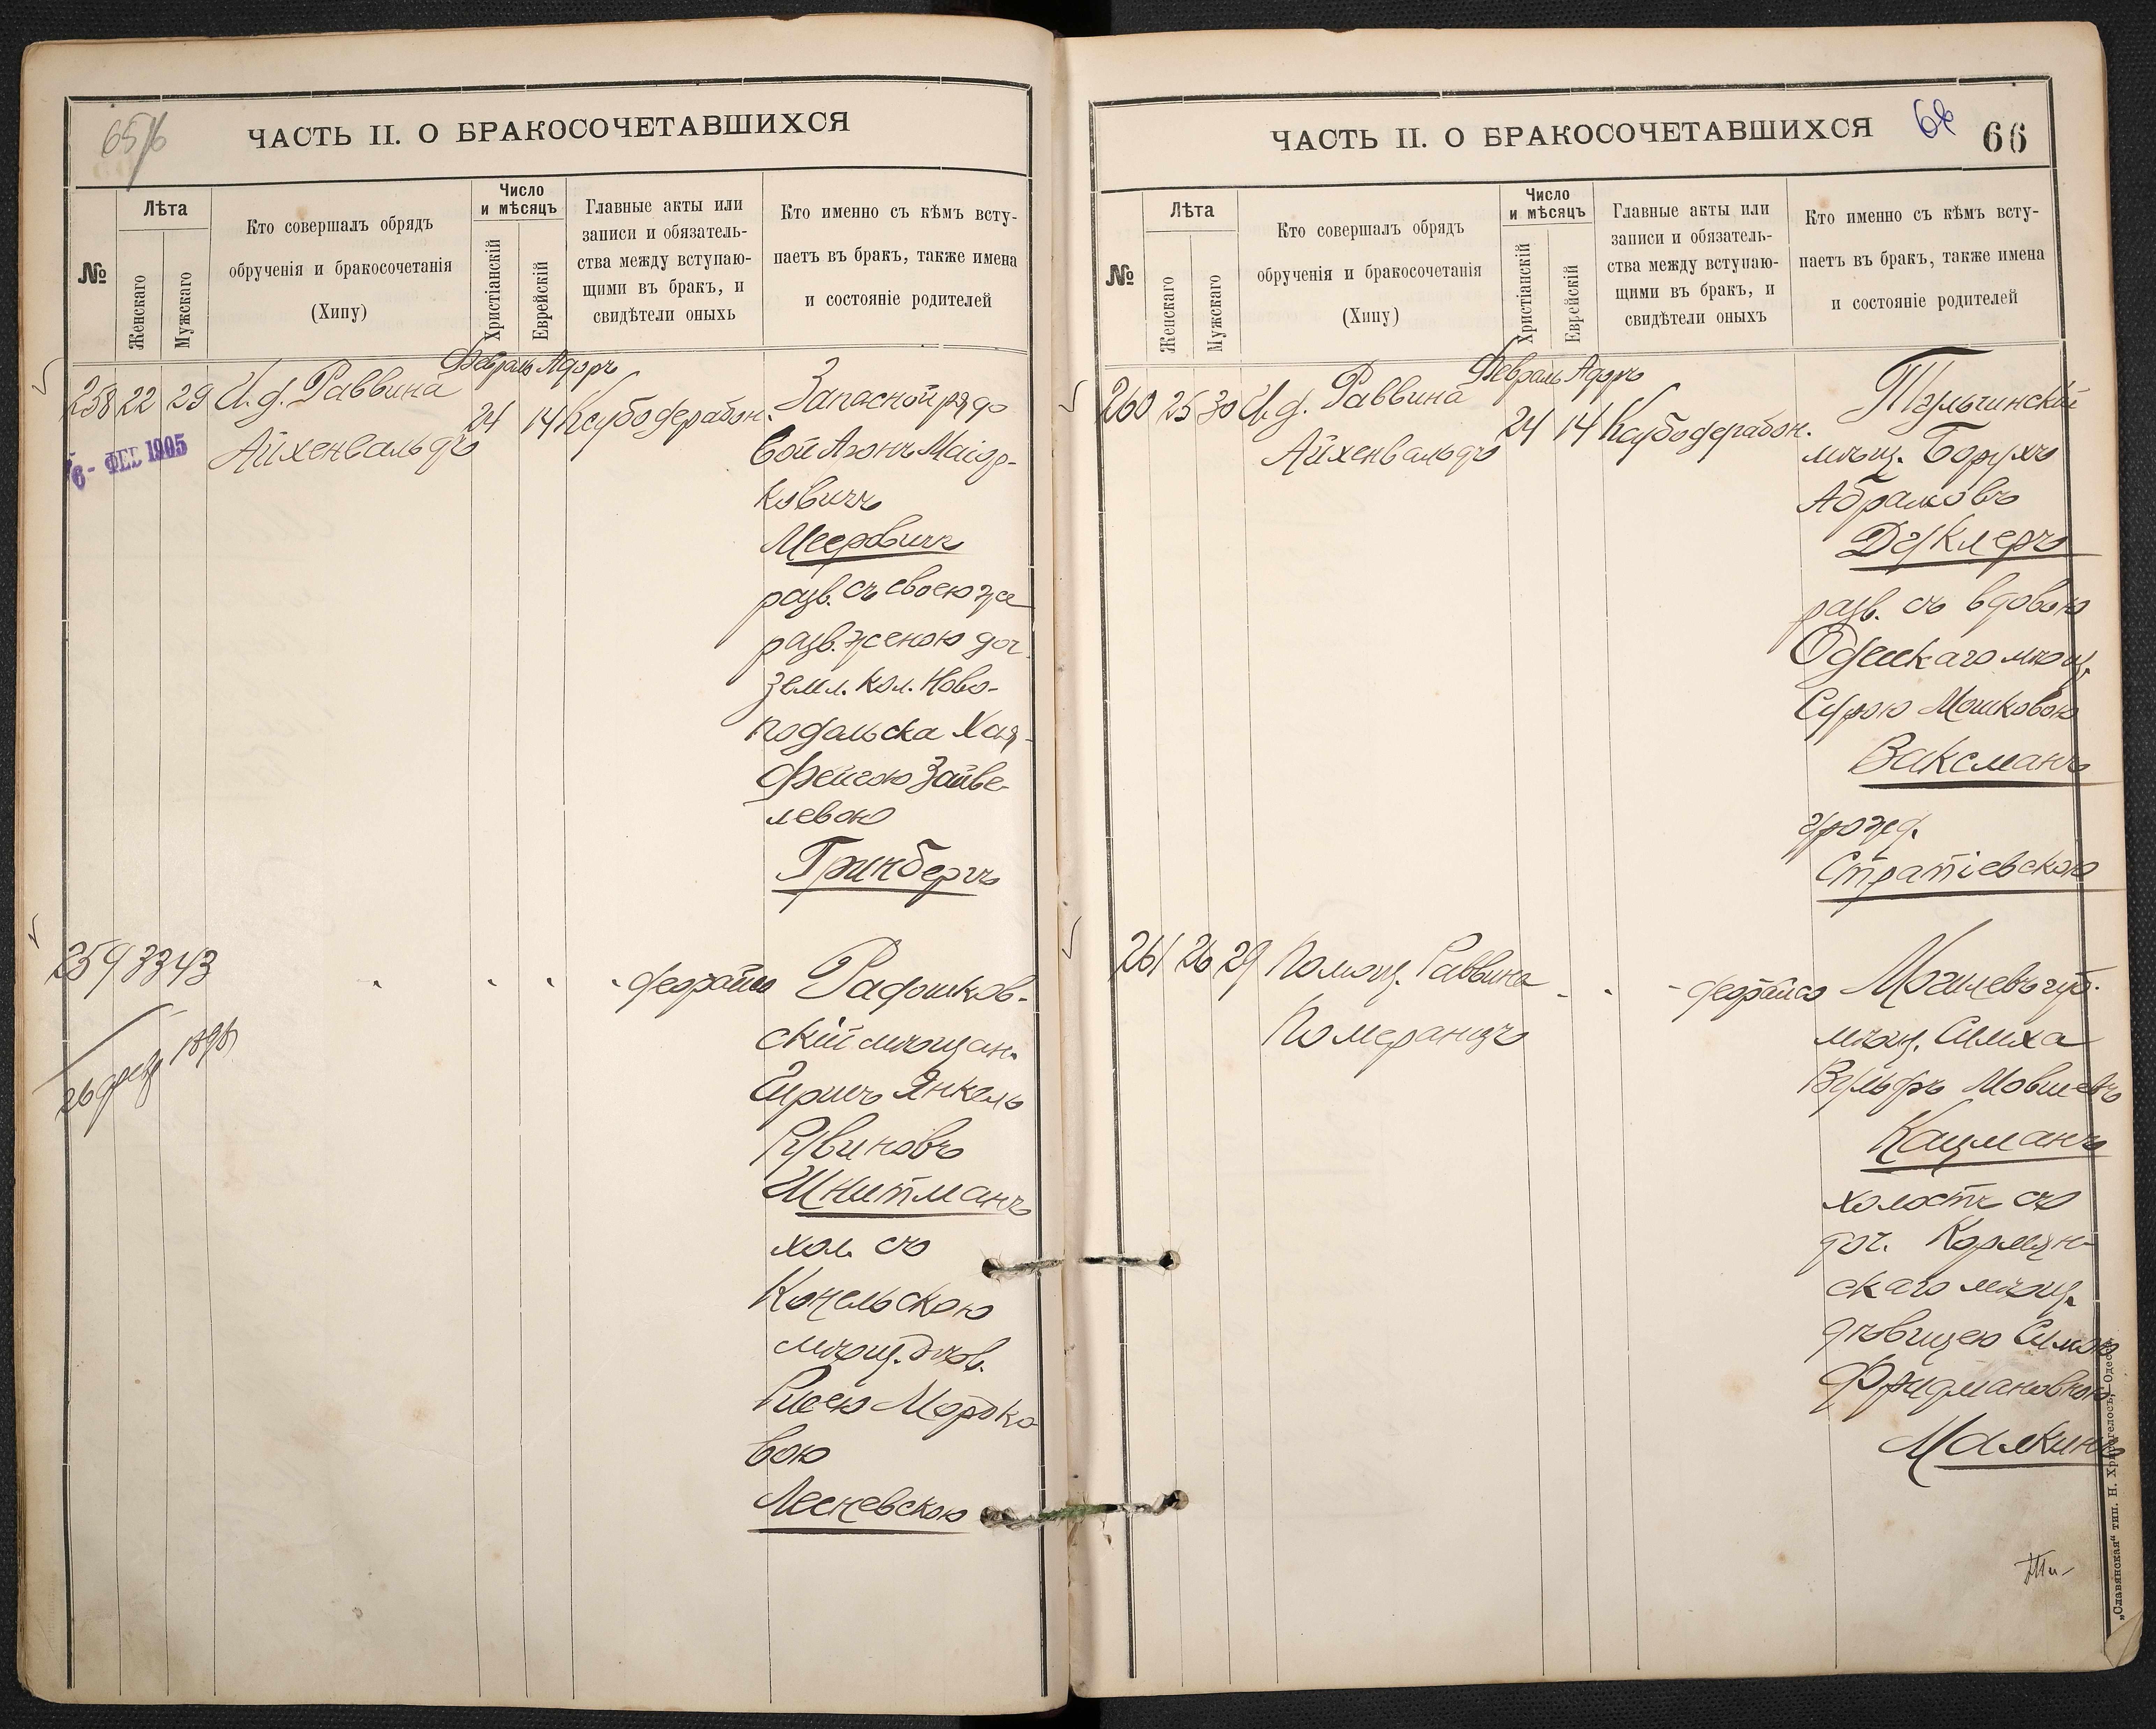 65/6
ЧАСТЬ II. О БРАКОСОЧЕТАВШИХСЯ
№
Лѣта
Женскаго
Мужскаго
Кто совершалъ обрядъ
обрученія и бракосочетанія
(Хипу)
Число
и мѣсяцъ
Христіанскій
Еврейскій
Главные акты или
записи и обязатель-
ства между вступаю-
щими въ бракъ, и
свидѣтели оныхъ
Кто именно съ кѣмъ всту-
паетъ въ бракъ, также имена
и состояніе родителей
Февраль Адоръ
258 22 29 И. д. Раввина 24 14 Ксубодерабон. Запасной рядо
Айхенвальдъ
6 - ФЕВ 1905
вой Аронъ Маіор-
ковичъ
Мееровичъ
разв. съ своею же
разв. женою доч.
земл. кол. Ново-
подольска Хая-
Фейгою Зайве-
левою
Гринбергъ
259 33 43 " " " " деорайсо Радошков-
26 1898
скій мѣщан.
Гиршъ Янкель
Рувиновъ
Шнитманъ
хол. съ
Конельскою
мѣщ. дѣв.
Рисею Мордко
вою
Лесневскою
ЧАСТЬ II. О БРАКОСОЧЕТАВШИХСЯ
66
66
№
Лѣта
Женскаго
Мужскаго
Кто совершалъ обрядъ
обрученія и бракосочетанія
(Хипу)
Число
и мѣсяцъ
Христіанскій
Еврейскій
Главные акты или
записи и обязатель-
ства между вступаю-
щими въ бракъ, и
свидѣтели оныхъ
Кто именно съ кѣмъ всту-
паетъ въ бракъ, также имена
и состояніе родителей
Февраль Адоръ
260 25 30 И. д. Раввина 24 14 Ксубодерабон. Тульчинскій
Айхенвальдъ
мѣщ. Борухъ
Абрамовъ
Деклеръ
разв. съ вдовою
Одесскаго мѣщ.
Сурою Мошковою
Ваксманъ
урожд.
Стратіевскою
261 26 29 Помощ. Раввина " " " деорайсо Могилевъ губ.
Померанцъ
мѣщ. Симха
Вульфъ Мовшевъ
Кацманъ
холостъ съ
доч. Кормян-
скаго мѣщ.
дѣвицею Симою
Фридмановною
Малкинъ
„Славянская“ тип. Н. Хрисогелосъ, Одесса